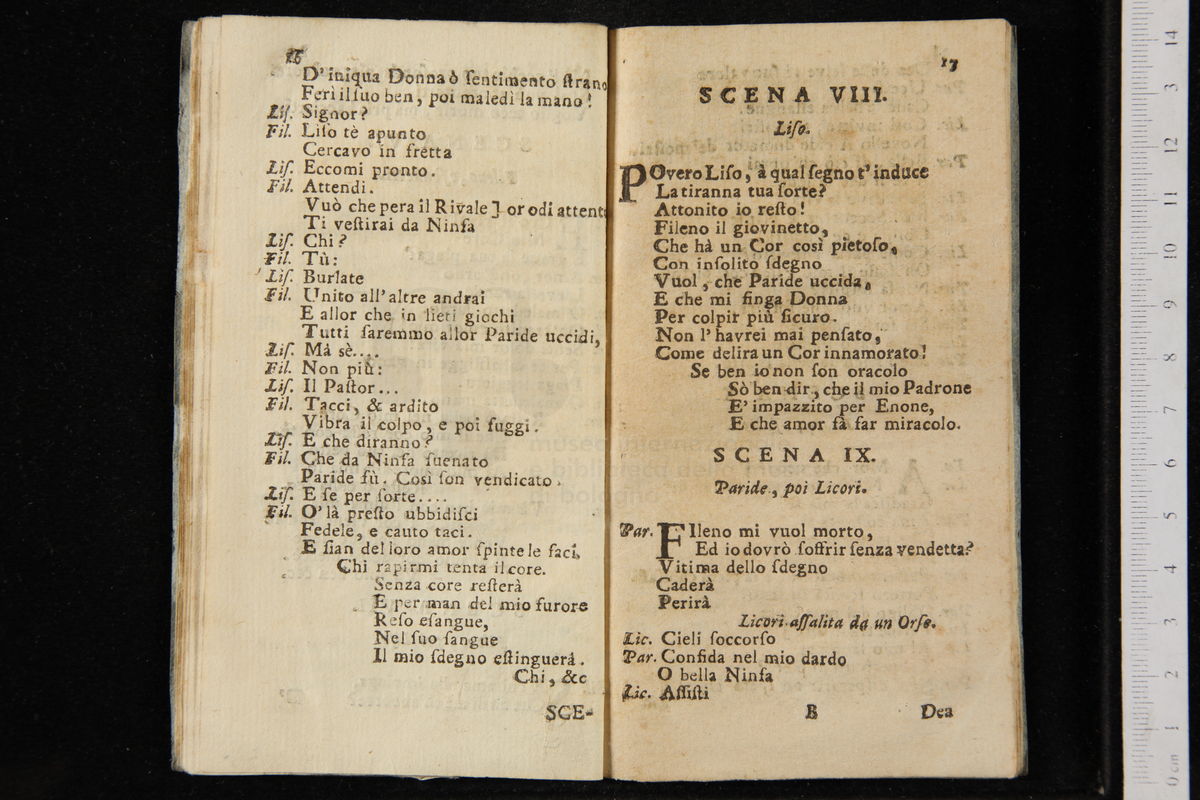 16
D'iniqua Donna ò ſentimento ſtrano
Ferì il ſuo ben, poi maledì la mano!
Liſ. Signor?
Fil. Liſo tè apunto
Cercavo in fretta
Liſ. Eccomi pronto.
Fil. Attendi.
Vuò che pera il Rivale] or odi attento
Ti veſtirai da Ninfa
Liſ. Chi?
Fil. Tù:
Liſ. Burlate
Fil. Unito all'altre andrai
E allor che in lieti giochi
Tutti ſaremmo allor Paride uccidi,
Liſ. Mà sè....
Fil. Non più:
Liſ. Il Paſtor...
Fil. Tacci, & ardito
Vibra il colpo, e poi fuggi.
Liſ. E che diranno?
Fil. Che da Ninfa ſuenato
Paride fù. Così ſon vendicato.
Liſ. E ſe per ſorte....
Fil. O'là preſto ubbidiſci
Fedele, e cauto taci.
E ſian del loro amor ſpinte le faci,
Chi rapirmi tenta il core.
Senza core reſterà
E per man del mio furore
Reſo eſangue,
Nel ſuo ſangue
Il mio ſdegno eſtinguerà.
Chi, &c
SCE-
17
SCENA VIII.
Liſo.
POvero Liſo, à qual ſegno t'induce
La tiranna tua ſorte?
Attonito io reſto!
Fileno il giovinetto,
Che hà un Cor così pietoſo,
Con inſolito ſdegno
Vuol, che Paride uccida,
E che mi finga Donna
Per colpir più ſicuro.
Non l'havrei mai penſato,
Come delira un Cor innamorato!
Se ben io non ſon oracolo
Sò ben dir, che il mio Padrone
E' impazzito per Enone,
E che amor fà far miracolo.
SCENA IX.
Paride, poi Licori.
Par. FIleno mi vuol morto,
Ed io dovrò ſoffrir ſenza vendetta?
Vitima dello ſdegno
Caderà
Perirà
Licori aſſalita da un Orſo.
Lic. Cieli ſoccorſo
Par. Confida nel mio dardo
O bella Ninfa
Lic. Aſſiſti
B Dea
museo internazionale
e biblioteca della musica
di bologna